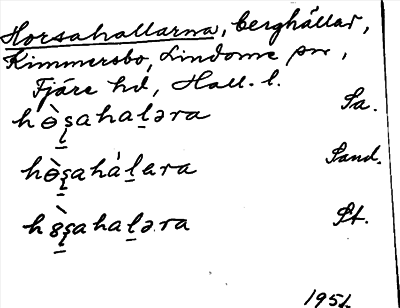 Horsahallarna, berghällar,
Kimmersbo, Lindome sn,
Fjäre hd, Hall. l.
hɵ̀s̨ahaḻəra Sa.
hɵ̀s̨aháḻara Sand.
hꝸ̀s̨ahaḻəra St.